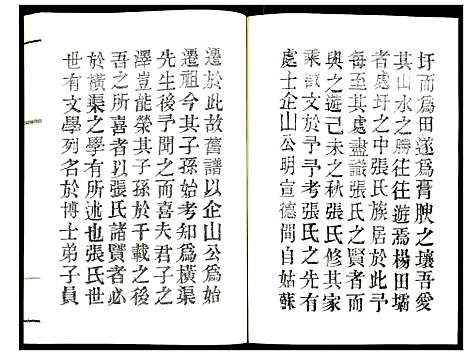 圩而爲田遂爲膏腴之壤吾愛
其山水之勝往往遊焉楊田壩
者處圩之中張氏族居於此予
每至其處盡識張氏之賢者而
與之遊己未之秋張氏修其家
乘徵文於予予考張氏之先有
處士企山公明宣德間自姑蘇
遷於此故舊譜以企山公爲始
遷祖今其子孫始考知爲橫渠
先生後予聞之而喜夫君子之
澤豈能榮其子孫於千載之後
吾之所喜者以張氏諸賢者必
於橫渠之學有所述也張氏世
世有文學列名於博士弟子員